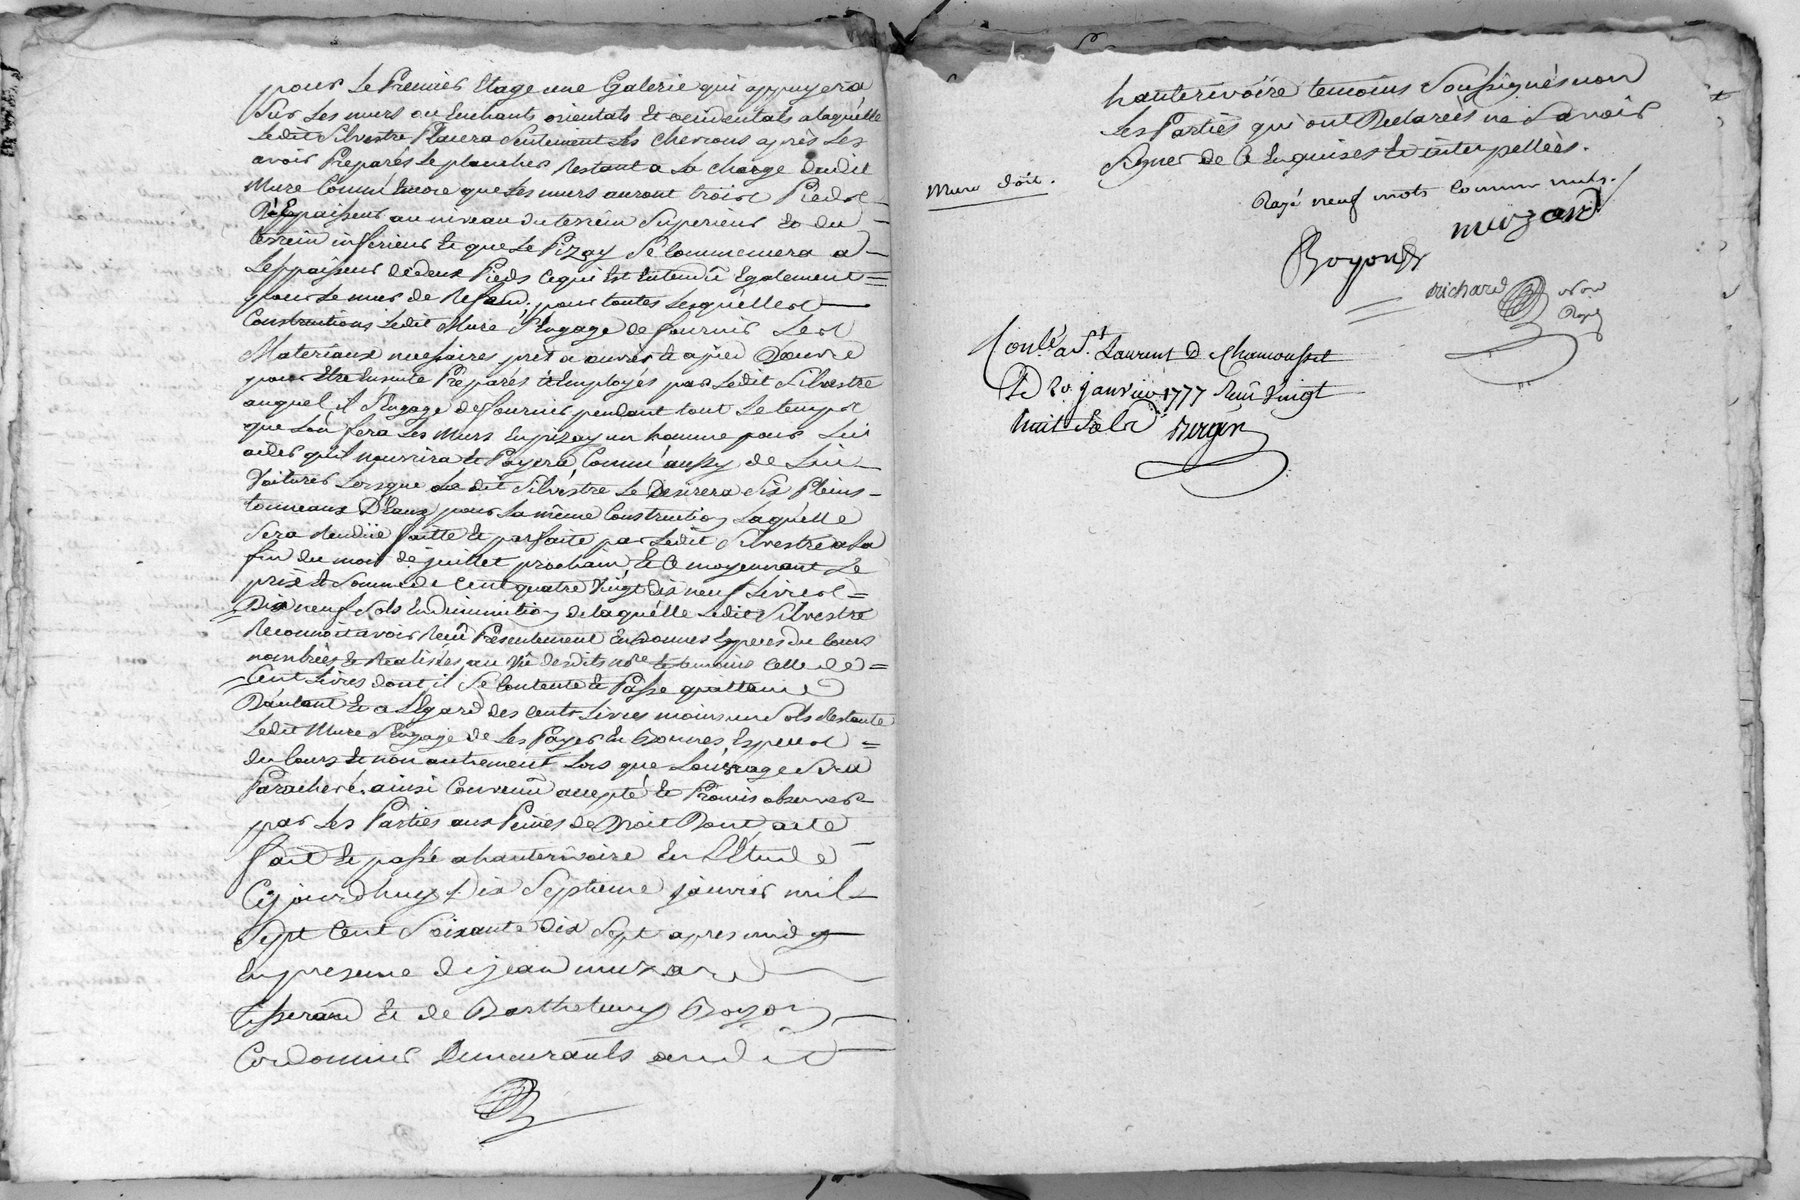 pour Le Premier Etage une Galerie qui appuyera
Sur Les murs ou Enchants orientals Et occidentals a laquélle
Ledit Silvestre Placera Seulement Les chevrons après Les
avoir Preparés Le plancher Restant a La charge dudit
Mure Comm'Encore que Les murs auront trois Pieds
D'Epaisseur au niveau du terrein Superieur Et du
terrein inferieur Et que Le Pizay Se Commencera a
Leppaisseur de deux Pieds Cequi Est Entendu Egalement
pour Le mur de Refend. pour toutes Lesquélles
Constructions Ledit Mure S'Engage de fournir Les
Materiaux necessaires prèt a ouvrer Et a pied D'œuvre
pour Etre Ensuite Préparés Et Employés par Ledit Silvestre
auquel il S'Engage de fournir pendant tout Le temps
que Lon fera Les Murs En pizay un homme pour Lui
aider qu'il nourrira Et Payera Comm'aussy de Lui
Voiturer Lorsque Ledit Silvestre Le Desirera Six Pleins
tonneaux D'Eaux pour La même Construction Laquélle
Sera Rendüe faitte Et parfaite par Ledit Silvestre a La
fin du mois de juillet prochain, Et Ce moyennant Le
prix Et Somme de Cent quatre Vingt dix neuf Livres
Dix neuf Sols En diminution de laquélle Ledit Silvestre
Reconnoit avoir Reçu Présentement En bonnes Especes du Cours
nombrées Et Realisées au Vû desdits Nore. Et temoins Celle de
Cent Livres dont il Se Contente Et Passe quittance
D'autant Et a L'Egard des Cents Livres moins un Sols Restante
Ledit Mure S'Engage de Les Payer En bonnes Especes
du Cours Et non autrement Lors que Louvrage Sera
Parachevé, ainsi Convenu accepté Et Promis observer
par Les Parties aux Peines de Droit Dont acte
fait Et passé a hauterivoire En L'Etude
Cejourdhuy Dix Septieme janvier mil
Sept Cent Soixante Dix Sept apres midy
En presence de jean muzard
tisserand Et de Barthelemy Boyon
Cordonnier Demeurants audit
hauterivoire temoins Soussignés non
Les Parties qui ont Declarées ne Savoir
Signer de Ce Enquises Et interpellées.
Mure doit.
Rayé neuf mots Comme nuls.
muzard
Boyond
Richard Nore
Royal
Conlé. a St. Laurent D Chamousset
Le 20 janvier 1777 Reçu Vingt
huit Sols